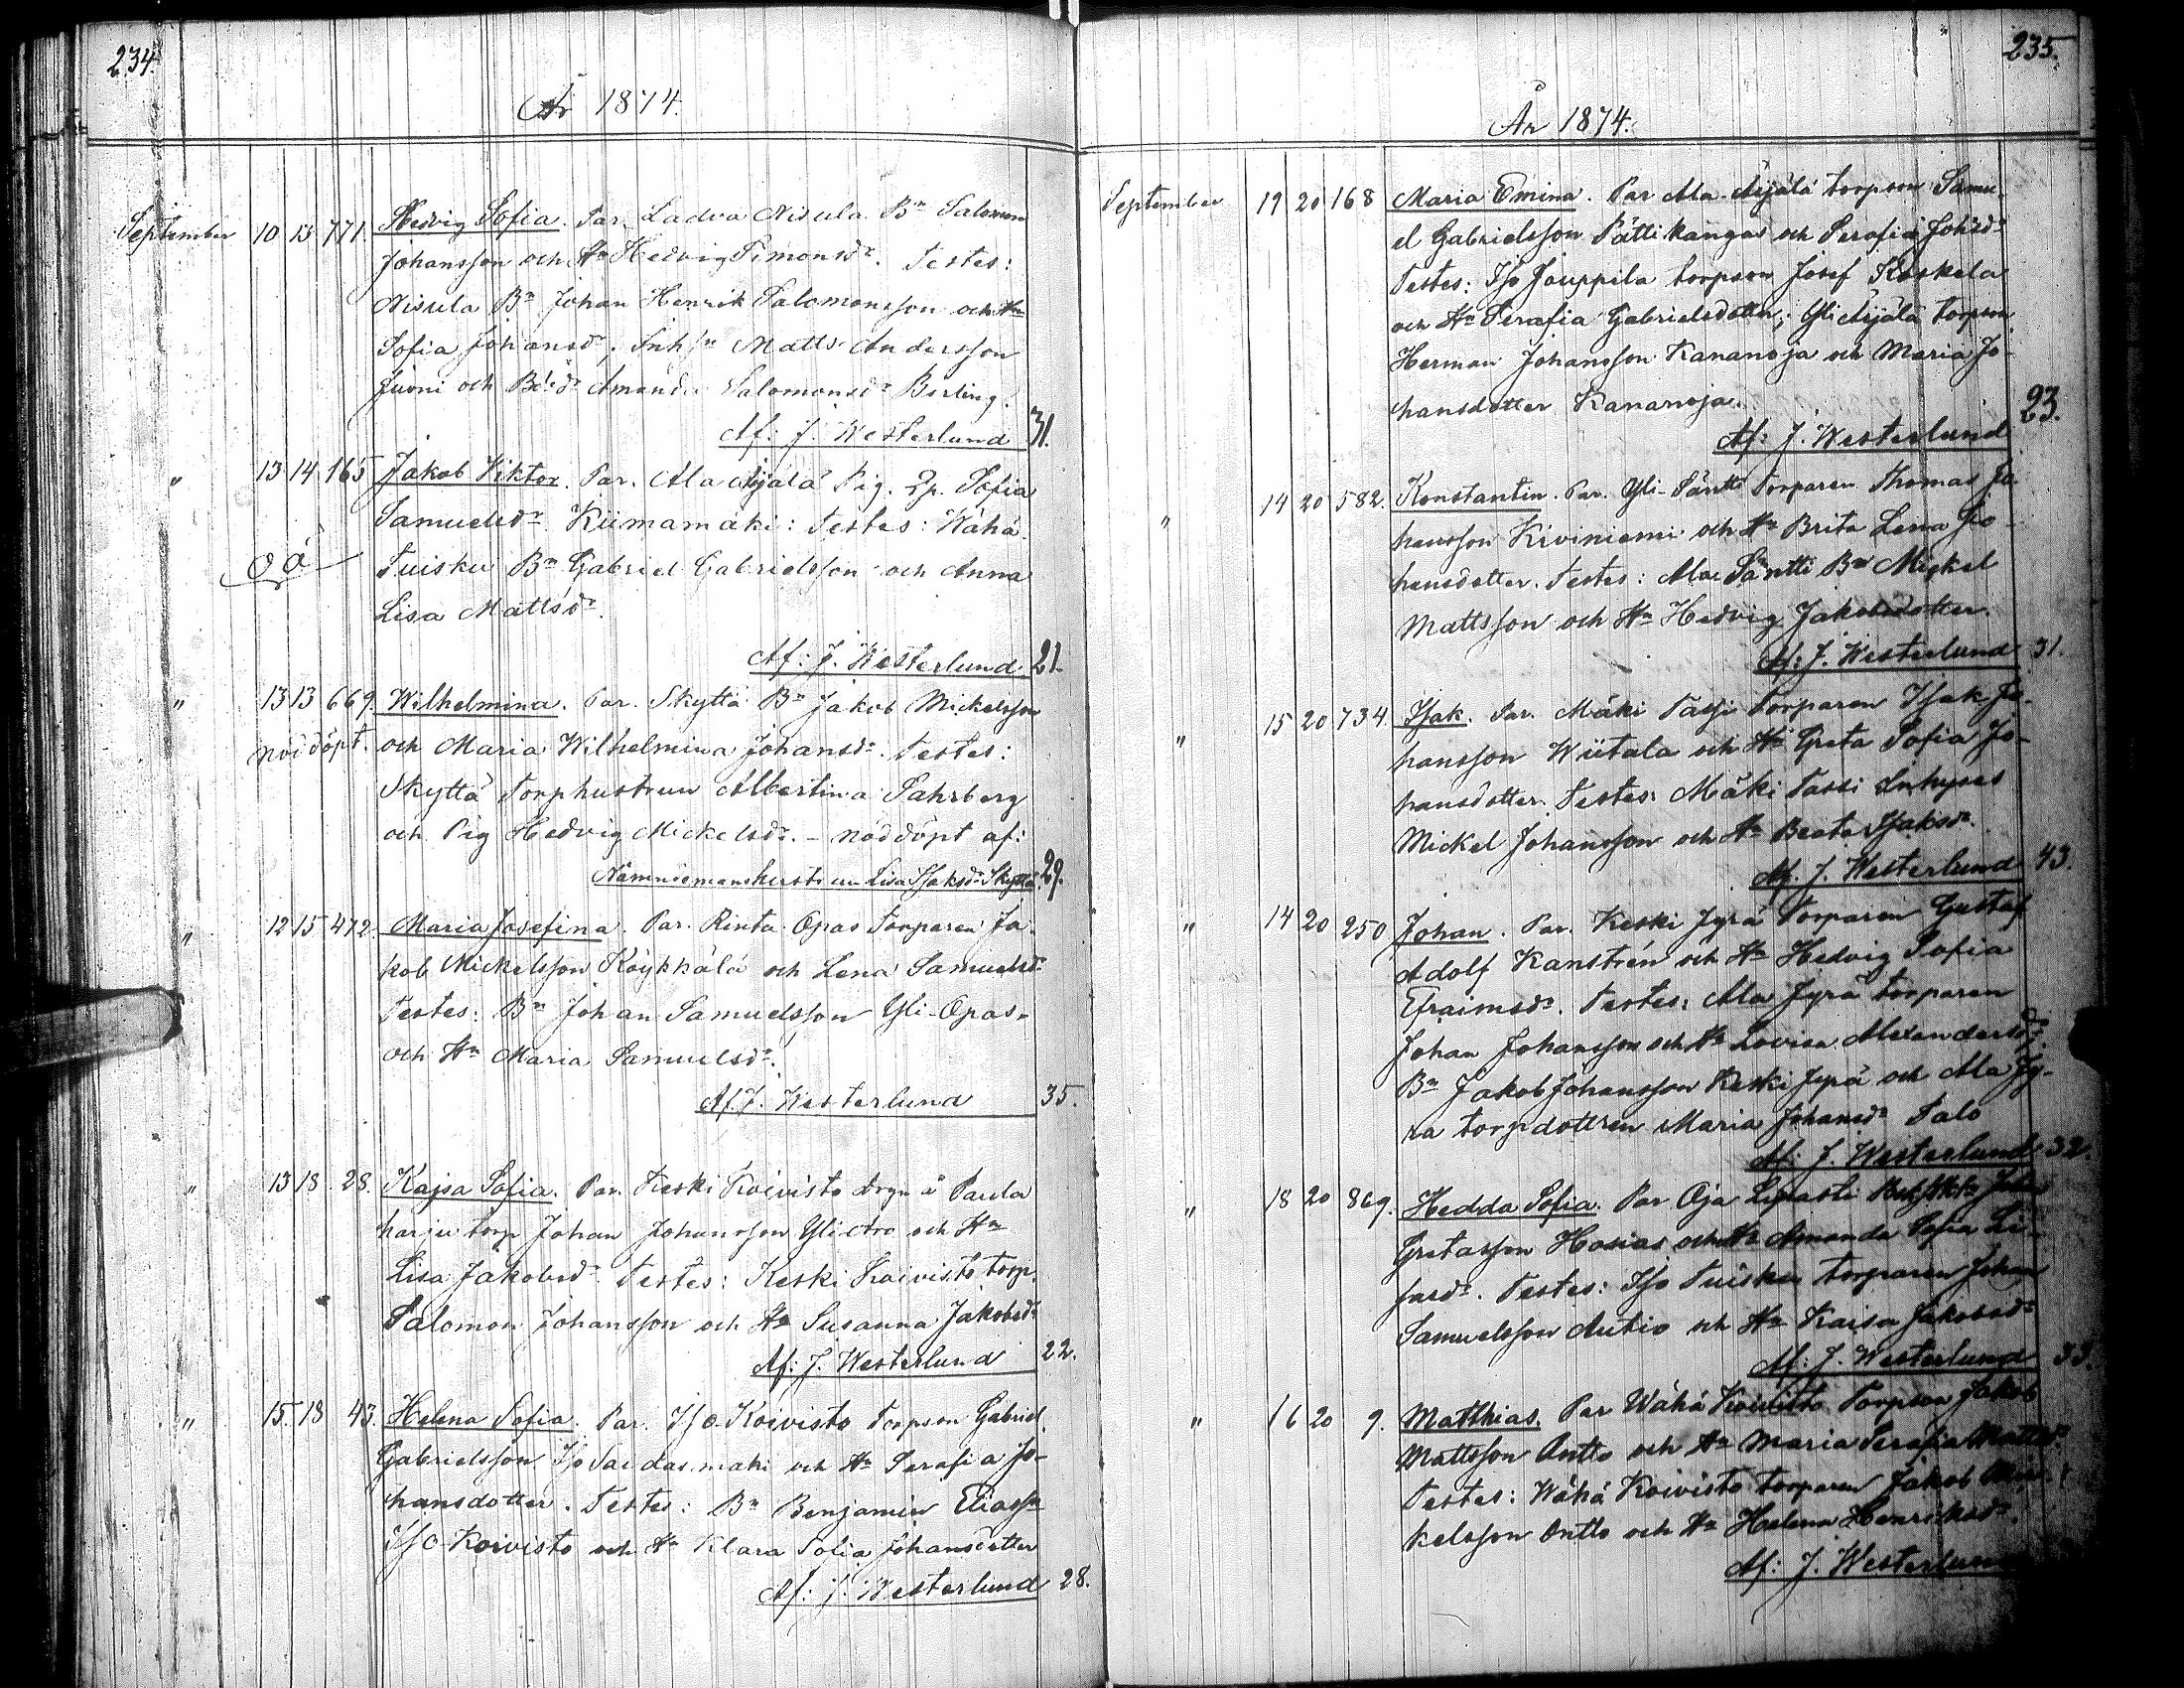 234.
År 1874.
September 10 13 771. Hedvig Sofia. Par. Ladva Nisula Bn Salomon
Johansson och Hn Hedvig Simonsdr. Testes:
Nisula Bn Johan Henrik Salomonsson och Hn
Sofia Johansdr; Inhsn Matts Andersson
Juoni och Bdr Amanda Salomonsdr Berling.
Af: J. Westerlund 31.
" 13 14 165 Jakob Viktor. Par. Ala Äijälä Pig. Sofia
Samuelsdr Kiimamäki: Testes: Wähä
oä
Tuisku Bn Gabriel Gabrielsson och Anna
Lisa Mattsdr.
Af: J. Westerlund 21.
" 13 13 669. Wilhelmina. Par. Skyttä Bn Jakob Mickelsson
nöddöpt. och Maria Wilhelmina Johansdr. Testes:
Skyttä Torphustrun Albertina Sahrberg
och Pig Hedvig Mickelsdr. – nöddöpt af:
Nämndemanshustrun Lisa Isaksdr Skyttä 29.
" 12 15 472. Maria Josefina. Par. Rinta Opas Torparen Ja-
kob Mickelsson Köykkälä och Lena Samuelsdr
Testes: Bn Johan Samuelsson Yli-Opas
och Hn Maria Samuelsdr.
Af. J. Westerlund 35.
" 13 18 28. Kajsa Sofia. Par. Keski Koivisto drgn å Paula
harju torp Johan Johansson Yliaro och Hn
Lisa Jakobsdr. Testes: Keski Koivisto torp.
Salomon Johansson och Hn Susanna Jakobsdr
Af: J. Westerlund 22.
" 15. 18 43. Helena Sofia. Par. Iso-Koivisto Torpson Gabriel
Gabrielsson Iso Saidasmäki och Hn Serafia Jo-
hansdotter. Testes: Bn Benjamin Eliasson
Iso-Koivisto och Hn Klara Sofia Johansdotter
Af: J. Westerlund 28.
235.
År 1874.
September 19 20 168 Maria Emina. Par Ala-Äijälä torpson Samu-
el Gabrielsson Pättikangas och Serafia Johsdr
Testes: Iso Jouppila torpson Josef Koskela
och Hn Serafia Gabrielsdotter; Yli Äijälä torpson
Herman Johansson Kananoja och Maria Jo-
hansdotter Kananoja.
Af: J. Westerlund 23.
" 14 20 582. Konstantin. Par. Yli-Säntti Torparen Thomas Jo-
hansson Kiviniemi och Hn Brita Lena Jo-
hansdotter. Testes: Ala Säntti Bn Mickel
Mattsson och Hn Hedvig Jakobsdotter.
Af: J. Westerlund 31.
" 15 20 734. Isak. Par. Mäki Passi Torparen Isak Jo-
hansson Wiitala och Hn Greta Sofia Jo-
hansdotter. Testes: Mäki Passi Inhyses
Mickel Johansson och Hn Beata Isaksdr.
Af. J. Westerlund 43.
" 14 20 250 Johan. Par. Keski Jyrä Torparen Gustaf
Adolf Kanstrén och Hn Hedvig Sofia
Efraimsdr. Testes: Ala Jyrä torparen
Johan Johansson och Hn Lovisa Alexandersdr;
Bn Jakob Johansson Keski Jyrä och Ala Jy-
rä torpdottren Maria Johansdr Salo
Af: J. Westerlund 32.
" 18 20 869. Hedda Sofia. Par Oja Lipasti
Gretasson Hosias och Hn Amanda Sofia Li-
sasdr. Testes: Iso Tuisku torparen Johan
Samuelsson Autio och Hn Kaisa Jakobsdr
Af: J. Westerlund 33.
" 16 20 9. Matthias. Par Wähä Koivisto Torpson Jakob
Mattsson Antto och Hn Maria Serafia Mattsdr.
Testes: Wähä Koivisto torparen Jakob Mic-
kelsson Antto och Hn Helena Henriksdr.
Af: J. Westerlund